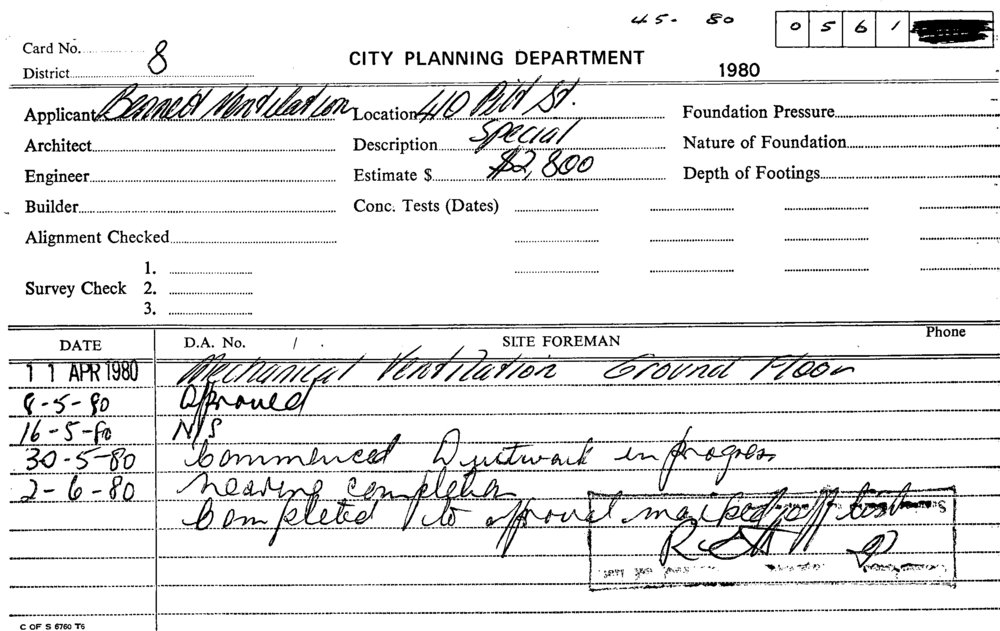 45-80 0 5 6 1
Card No. 8
CITY PLANNING DEPARTMENT
District
1980
Applicant Benned Ventilation Location 410 Pitt St. Foundation Pressure
Architect Description Special Nature of Foundation
Engineer Estimate $ $2,800 Depth of Footings
Builder Conc. Tests (Dates)
Alignment Checked
1.
Survey Check 2.
3.
DATE D.A. No. / . SITE FOREMAN Phone
11 APR 1980 Mechanical Ventilation Ground Floor
8-5-80 Approved
16-5-80 N/S
30-5-80 Commenced Ductwork in progress
2-6-80 nearing completion
Completed to approval marked off list
C OF S 6760 T6